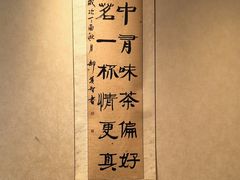 中有味茶偏好
茗一杯情更真
歲次丁酉秋月